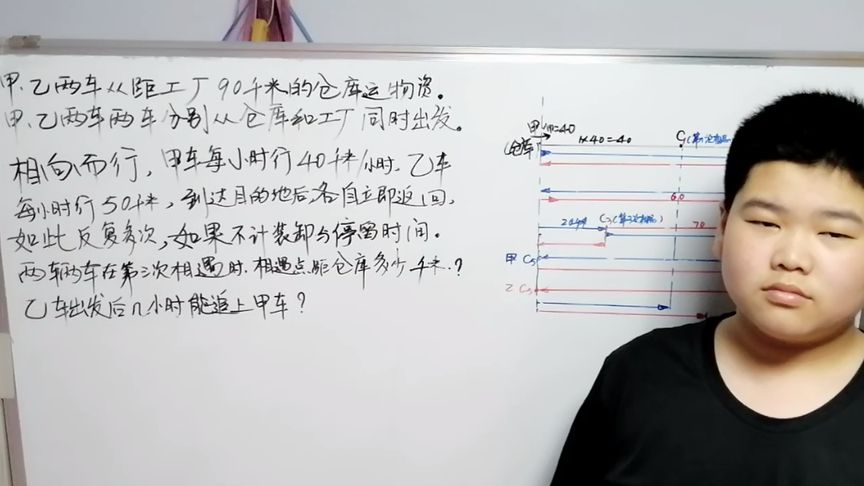 甲、乙两车从距工厂90千米的仓库运物资。
甲、乙两车两车分别从仓库和工厂同时出发。
相向而行，甲车每小时行40千米/小时.乙车
每小时行50千米，到达目的地后,各自立即返回,
如此反复多次,如果不计装卸与停留时间。
两车两车在第三次相遇时.相遇点距仓库多少千米.?
乙车出发后几小时能追上甲车？
=40
1×40=40
C₁(第一次相遇
仓库
60
C₃(第三次相遇)
70
甲 C₅
乙 C₅